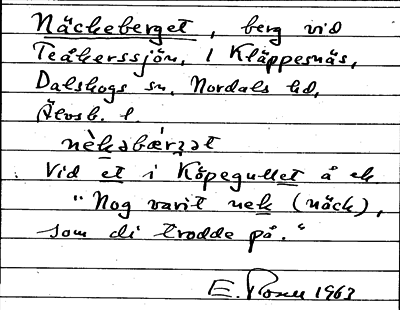 Näckeberget, berg vid
Teåkerssjön, i Kläppesnäs,
Dalskogs sn, Nordals hd,
Älvsb. l.
nèkəbærʒət
Vid et i Köpegullet å ek
"Nog varit nek (näck),
som di trodde på."
E. Rosell 1963